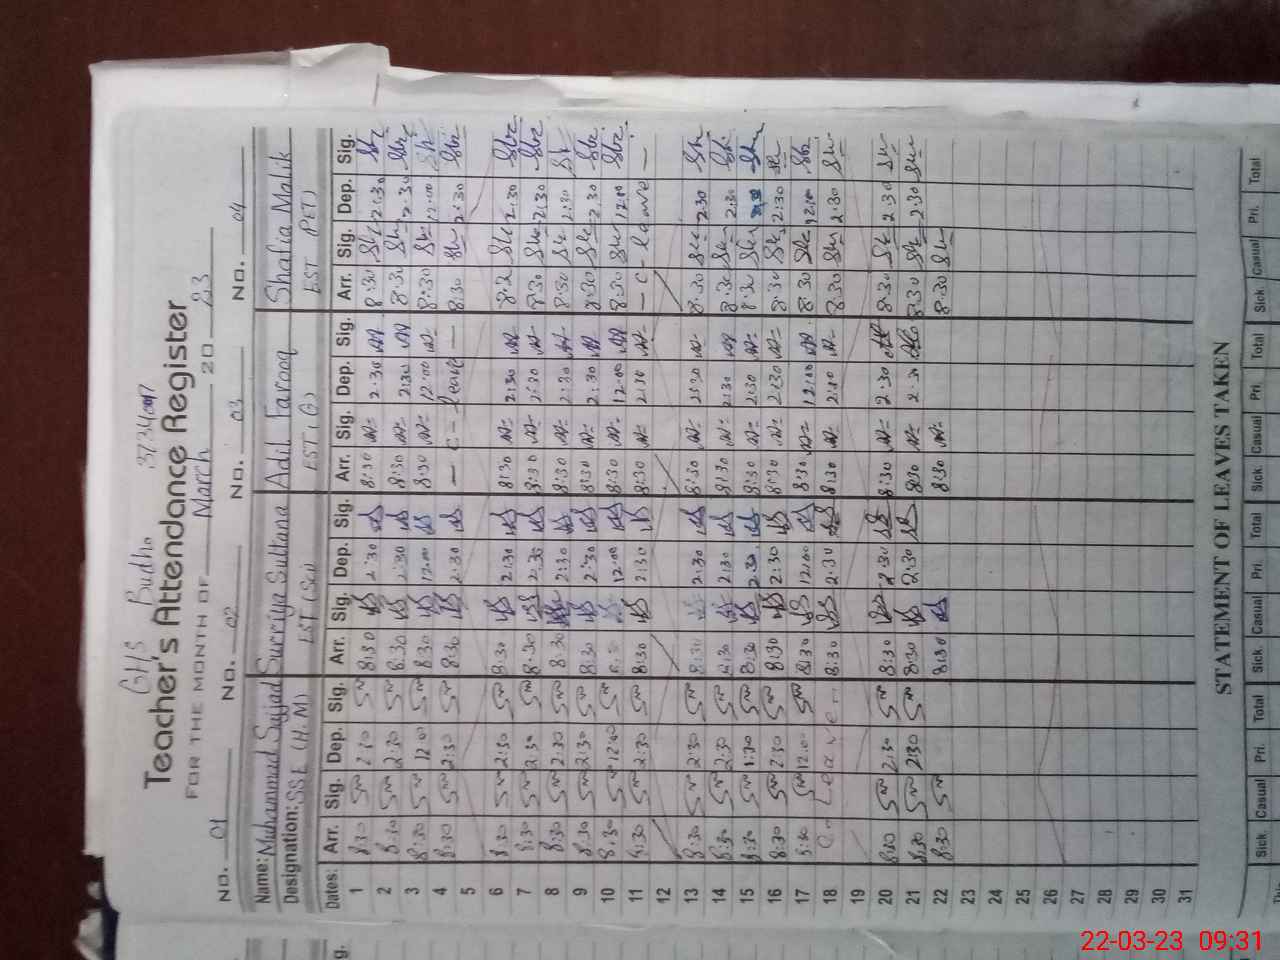 GHS Budho 37340017
Teacher's Attendance Register
FOR THE MONTH OF March 20 23
NO. 01 NO. 02 NO. 03 NO. 04
Name: Muhammad Sajjad Surriya Sultana Adil Farooq Shafia Malik
Designation: SSE (H.M) EST (Sci) EST (G) EST (PET)
Dates: Arr. Sig. Dep. Sig. Arr. Sig. Dep. Sig. Arr. Sig. Dep. Sig. Arr. Sig. Dep. Sig.
1 8:30 2:30 8:30 2:30 8:30 2:30 8:30 2:30
2 8:30 2:30 8:30 2:30 8:30 2:30 8:30 2:30
3 8:30 12:00 8:30 12:00 8:30 12:00 8:30 12:00
4 8:30 2:30 8:30 2:30 — C - leave — 8:30 2:30
5
6 8:30 2:30 8:30 2:30 8:30 2:30 2:30
7 8:30 2:30 8:30 2:30 8:30 2:30 8:30 2:30
8 8:30 2:30 8:30 2:30 8:30 2:30 8:30 2:30
9 8:30 2:30 8:30 2:30 8:30 2:30 8:30 2:30
10 8:30 12:00 12:00 8:30 12:00 8:30 12:00
11 8:30 2:30 8:30 2:30 8:30 2:30 — C - leave —
12
13 8:30 2:30 8:30 2:30 8:30 2:30 8:30 2:30
14 8:30 2:30 8:30 2:30 8:30 2:30 8:30 2:30
15 8:30 1:30 8:30 2:30 8:30 2:30 8:30
16 8:30 2:30 8:30 2:30 8:30 2:30 8:30 2:30
17 8:30 12:00 8:30 12:00 8:30 12:00 8:30 12:00
18 Leave 8:30 2:30 8:30 2:30 8:30 2:30
19
20 8:30 2:30 8:30 2:30 8:30 2:30 8:30 2:30
21 8:30 2:30 8:30 2:30 8:30 2:30 8:30 2:30
22 8:30 8:30 8:30 8:30
23
24
25
26
27
28
29
30
31
STATEMENT OF LEAVES TAKEN
Sick Casual Pri. Total Sick Casual Pri. Total Sick Casual Pri. Total Sick Casual Pri. Total
22-03-23 09:31